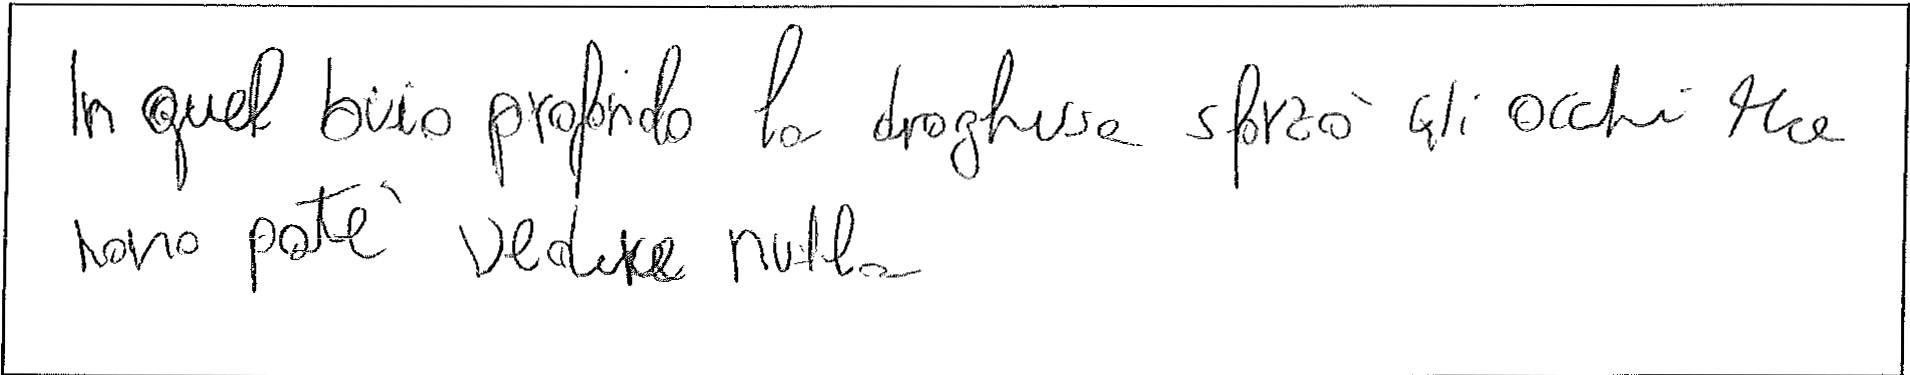 In quel buio profondo la droghusa sforzò gli occhi ma
nono poté vedere nulla